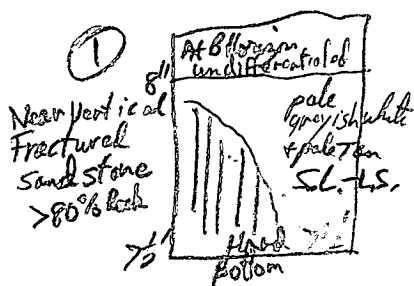 ①
A+B Horizon
undifferentiated
8"
Near vertical
Fractured
Sandstone
>80% Rock
pale
greyish white
+ pale Tan
S.L.-L.S.
7½'
Hard
Bottom